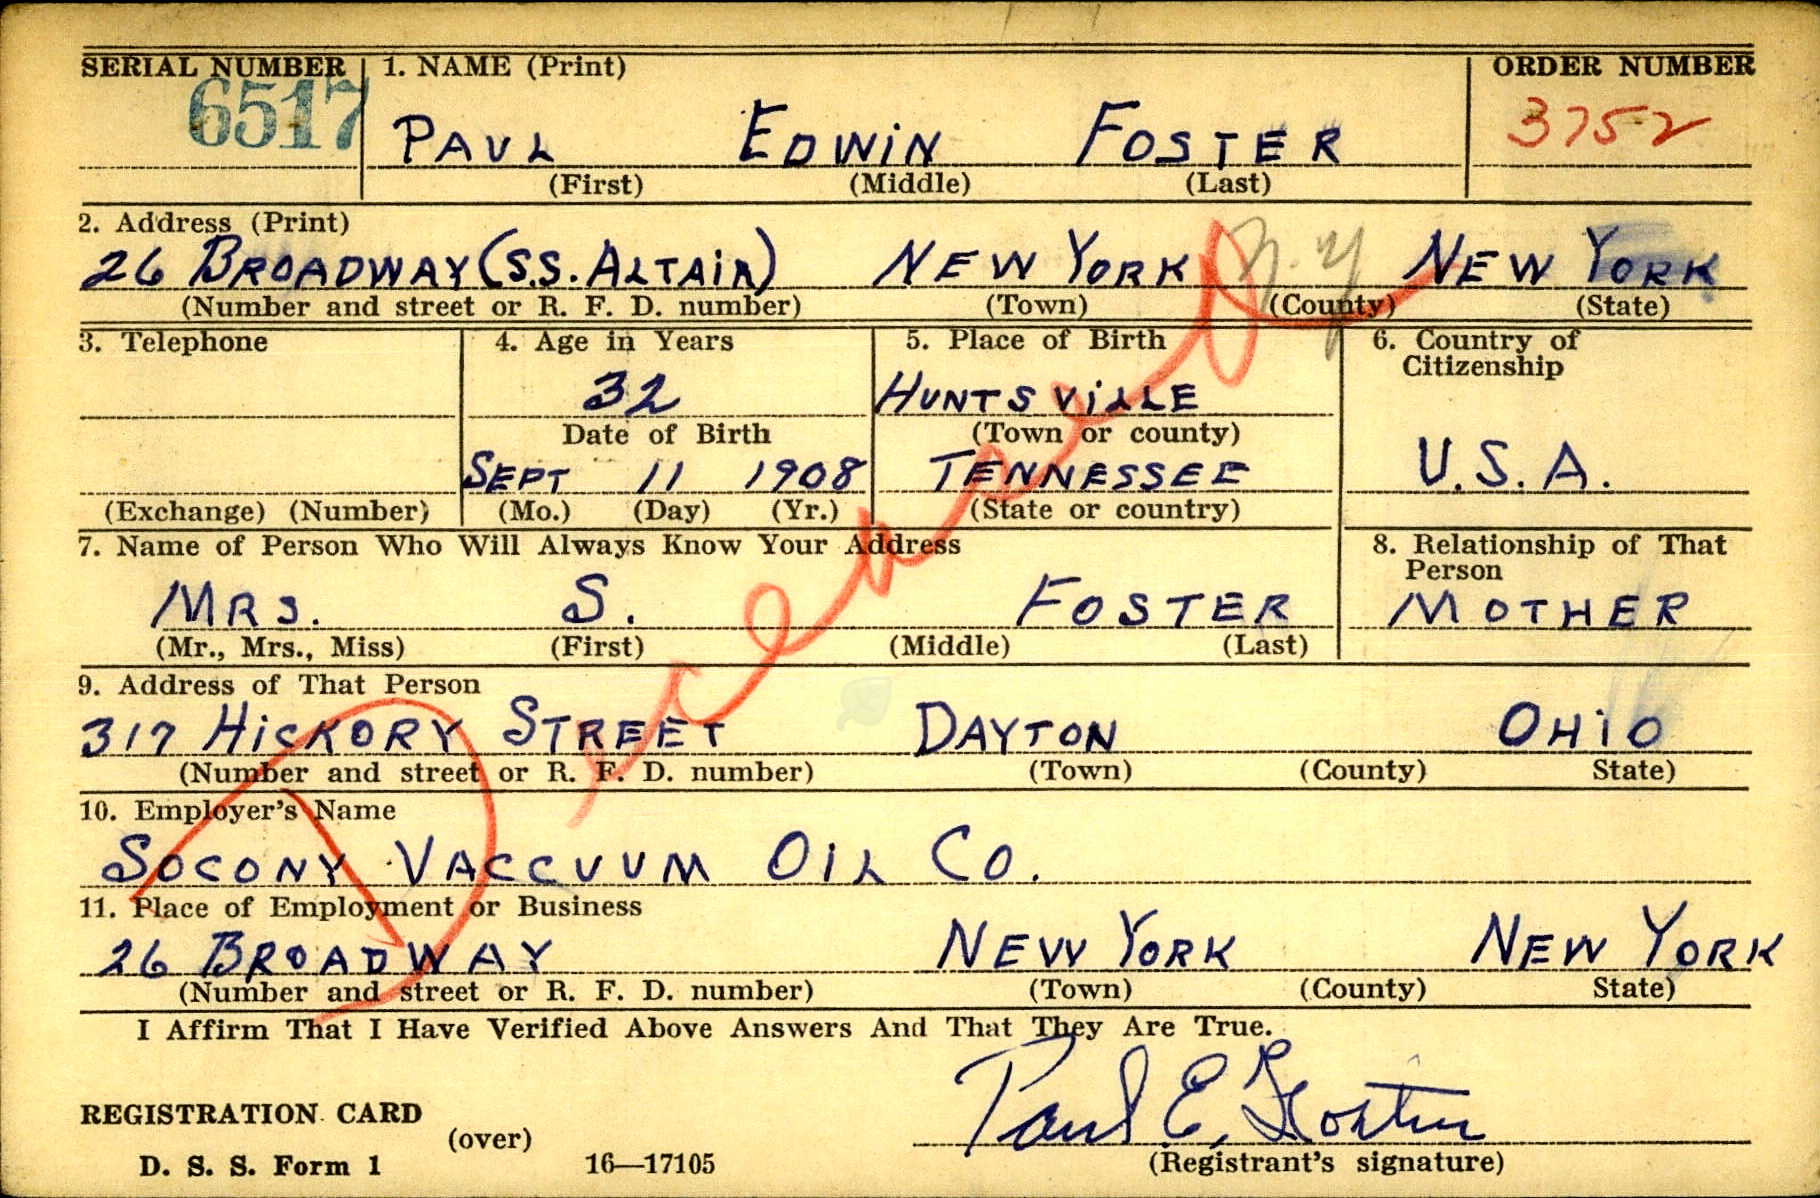 SERIAL NUMBER 1. NAME (Print) ORDER NUMBER
6517 PAUL EDWIN FOSTER 3752
(First) (Middle) (Last)
2. Address (Print)
26 BROADWAY (S.S. ALTAIR) NEW YORK N.Y NEW YORK
(Number and street or R. F. D. number) (Town) (County) (State)
3. Telephone 4. Age in Years 5. Place of Birth 6. Country of
Citizenship
32 HUNTSVILLE
Date of Birth (Town or county)
SEPT 11 1908 TENNESSEE U.S.A.
(Exchange) (Number) (Mo.) (Day) (Yr.) (State or country)
7. Name of Person Who Will Always Know Your Address 8. Relationship of That
Person
MRS. S. FOSTER MOTHER
(Mr., Mrs., Miss) (First) (Middle) (Last)
9. Address of That Person
317 HICKORY STREET DAYTON OHIO
(Number and street or R. F. D. number) (Town) (County) State)
10. Employer's Name
SOCONY VACCUUM OIL CO.
11. Place of Employment or Business
26 BROADWAY NEW YORK NEW YORK
(Number and street or R. F. D. number) (Town) (County) State)
Deceased
I Affirm That I Have Verified Above Answers And That They Are True.
Paul E. Foster
REGISTRATION CARD
(over)
D. S. S. Form 1 16—17105 (Registrant's signature)